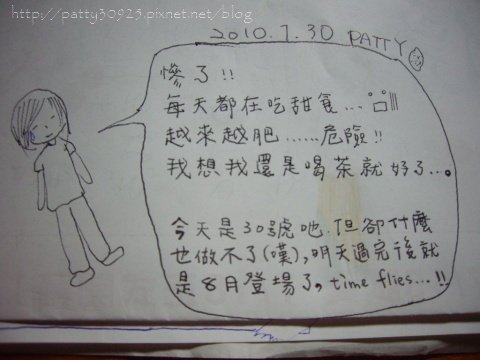 http://patty30923.pixnet.net/blog
2010.7.30 PATTY
慘了!!
每天都在吃甜食...
越來越肥......危險!!
我想我還是喝茶就好了...。
今天是30號吔.但卻什麼
也做不了(嘆),明天過完後就
是8月登場了,time flies...!!